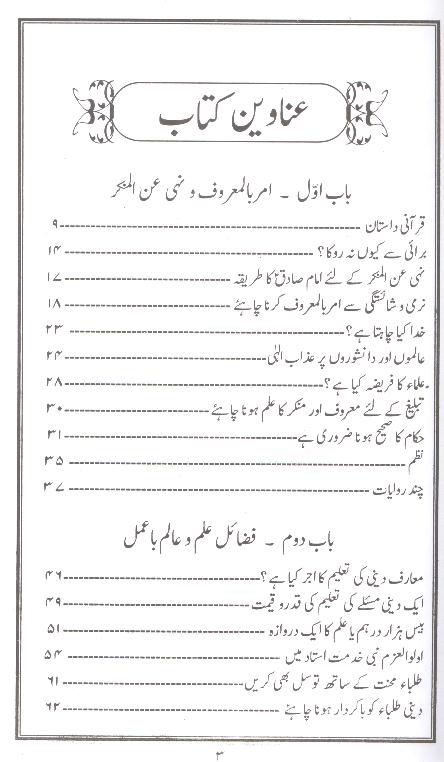 عناوین کتاب
باب اوّل ۔ امر بالمعروف و نہی عن المنکر
قرآنی داستان ۹
برائی سے کیوں نہ روکا؟ ۱۴
نہی عن المنکر کے لئے امام صادقؑ کا طریقہ ۱۷
نرمی و شائستگی سے امر بالمعروف کرنا چاہئے ۱۸
خدا کیا چاہتا ہے؟ ۲۳
عالموں اور دانشوروں پر عذاب الٰہی ۲۴
علماء کا فریضہ کیا ہے؟ ۲۸
تبلیغ کے لئے معروف اور منکر کا علم ہونا چاہئے ۳۰
حکام کا صحیح ہونا ضروری ہے ۳۱
نظم ۳۵
چند روایات ۳۷
باب دوم ۔ فضائل علم و عالم باعمل
معارف دینی کی تعلیم کا اجر کیا ہے؟ ۴۶
ایک دینی مسئلے کی تعلیم کی قدر و قیمت ۴۹
بیس ہزار درہم یا علم کا ایک دروازہ ۵۱
اولوالعزم نبی خدمت استاد میں ۵۴
طلباء محنت کے ساتھ توسل بھی کریں ۶۱
دینی طلباء کو باکردار ہونا چاہئے ۶۲
۳